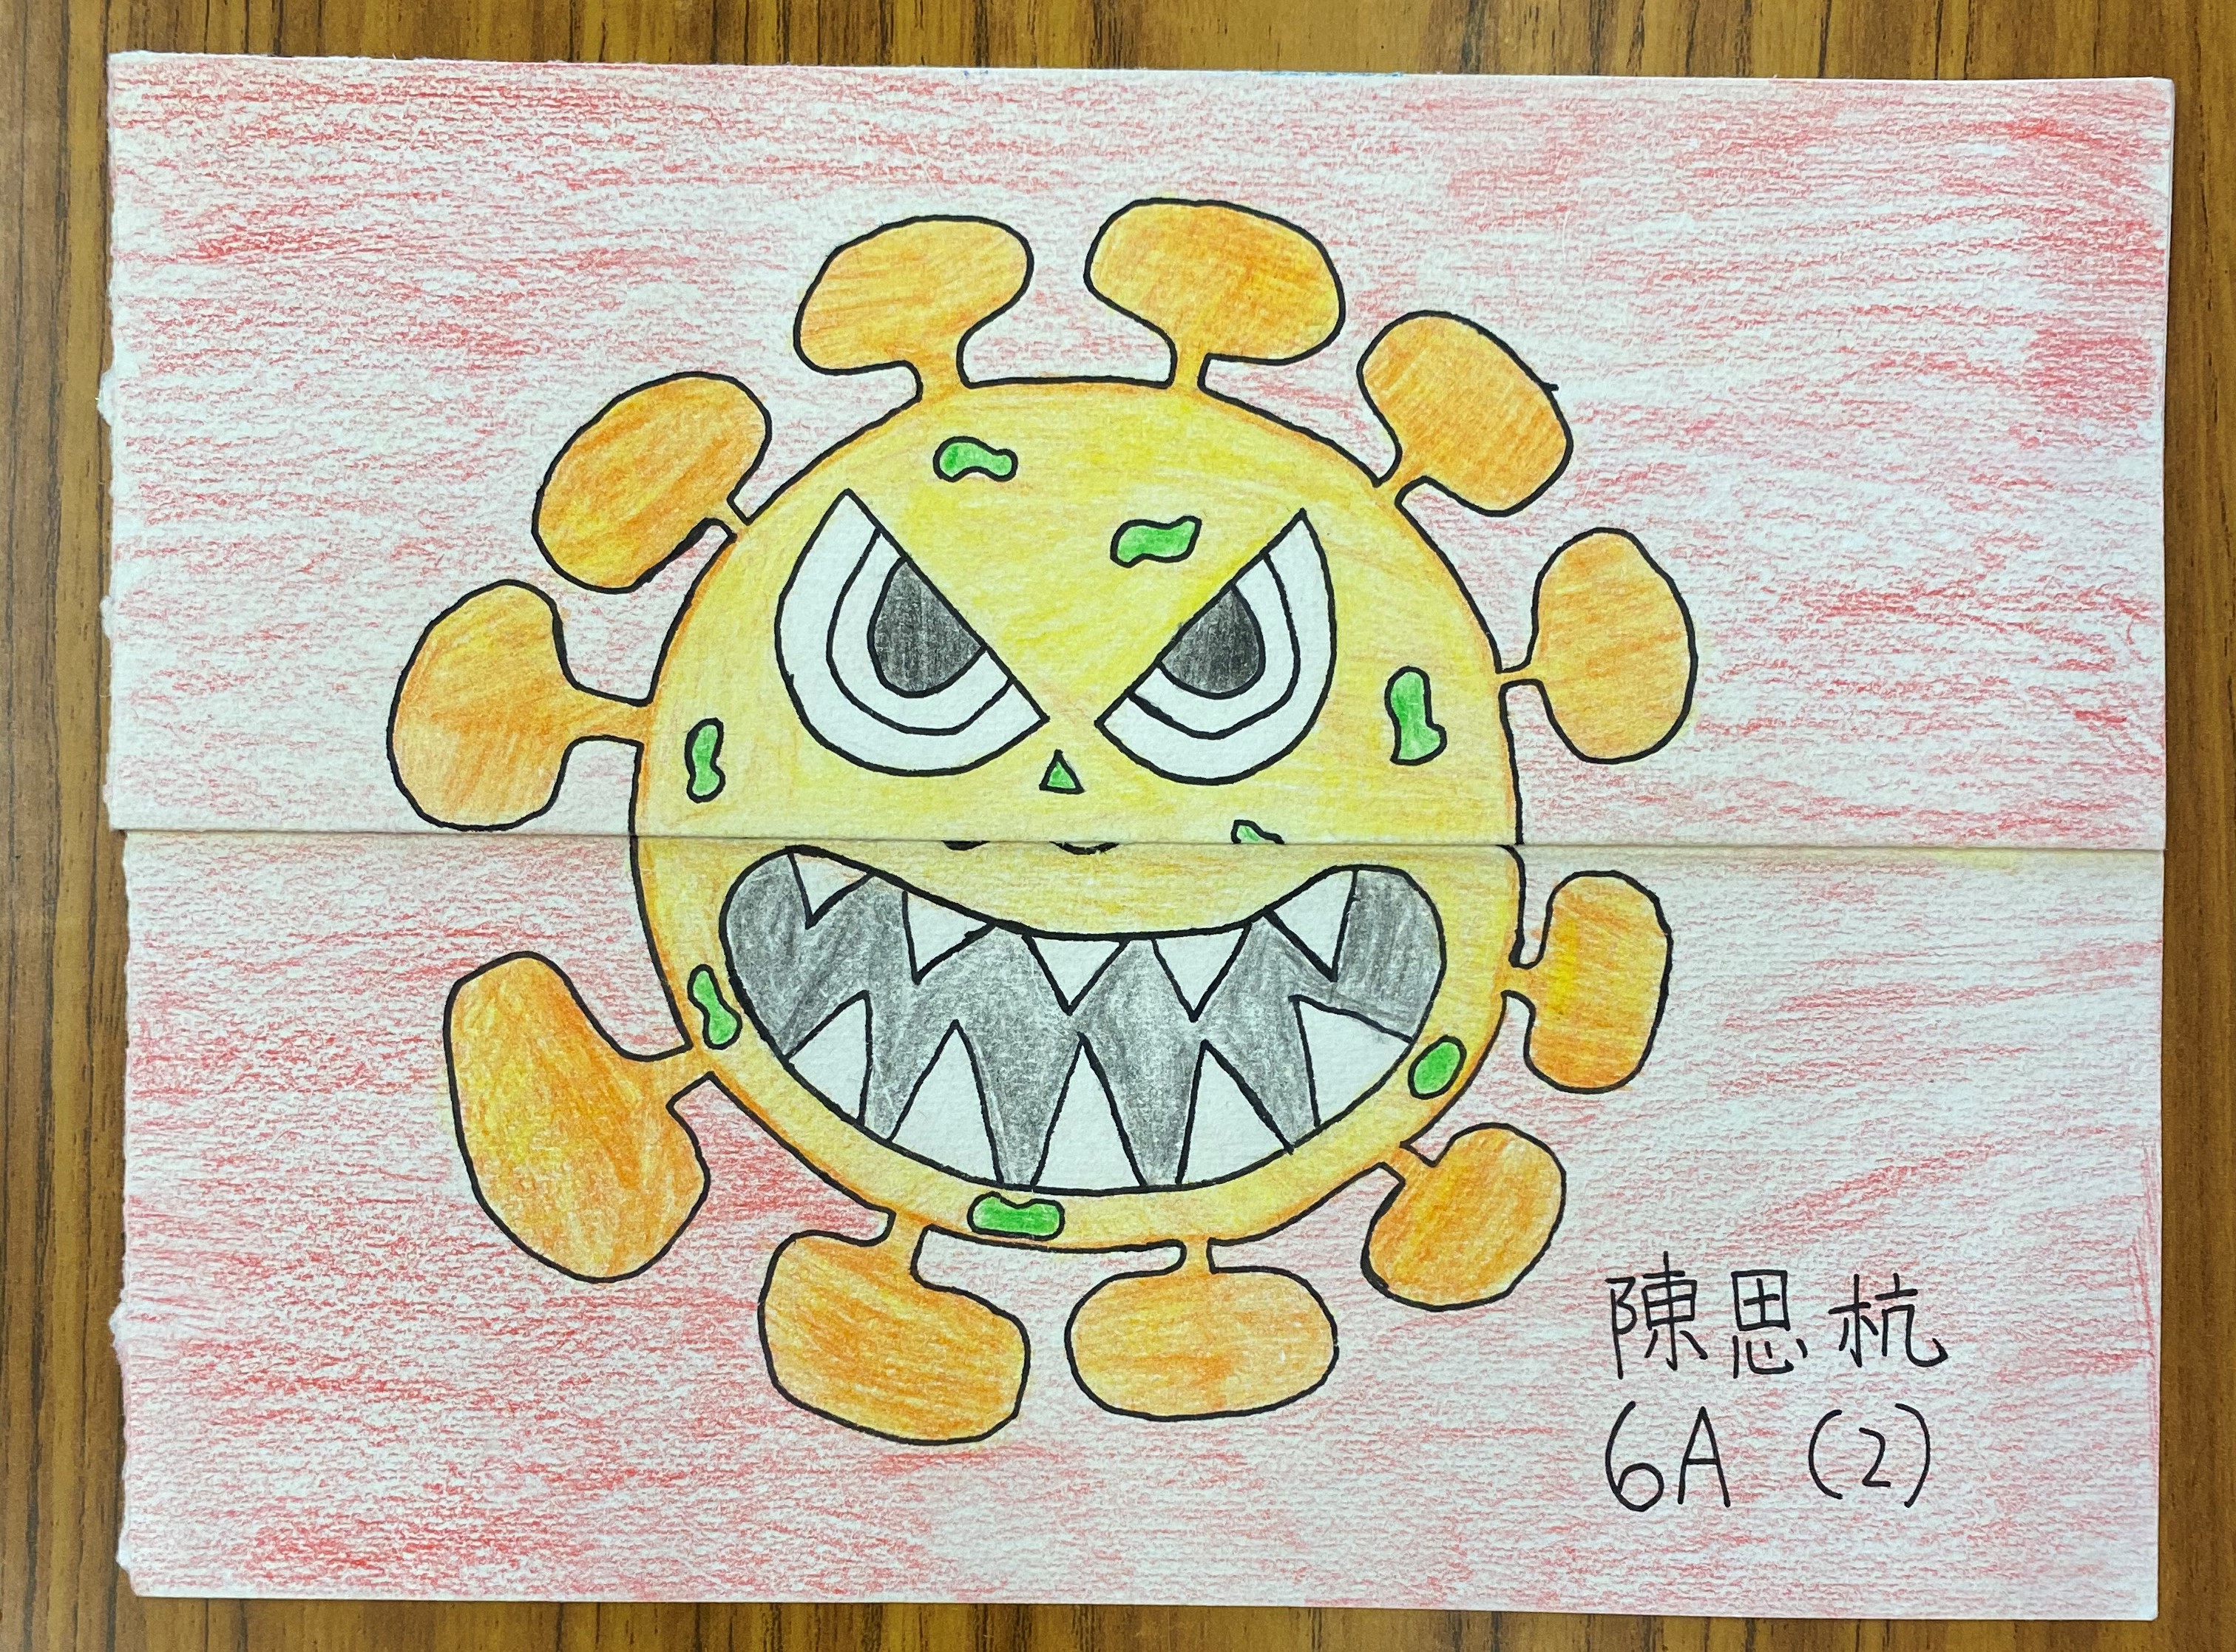 陳思杭
6A (2)